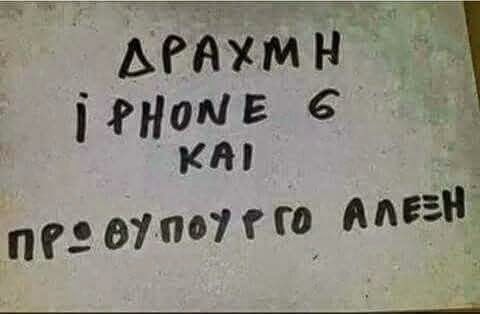 ΔΡΑΧΜΗ
iPHONE 6
ΚΑΙ
ΠΡΩΘΥΠΟΥΡΓΟ ΑΛΕΞΗ